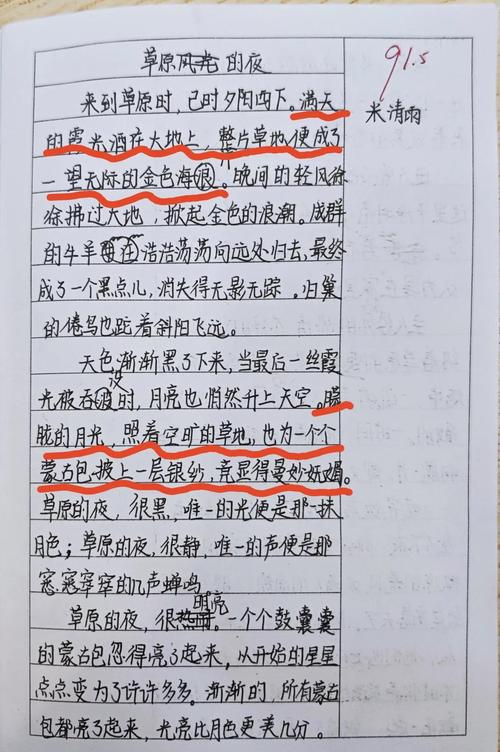 草原的夜
91.5
米清雨
来到草原时，已时夕阳西下。满天
的霞光洒在大地上，整片草地便成了
一望无际的金色海浪。晚间的轻风徐
徐拂过大地，掀起金色的浪潮。成群
的牛羊要在浩浩荡荡向远处归去，最终
成了一个黑点儿，消失得无影无踪。归巢
的倦鸟也跎着斜阳飞远。
天色渐渐黑了下来，当最后一丝霞
光被吞没时，月亮也悄然升上天空。朦
胧的月光，照着空旷的草地，也为一个个
蒙古包披上一层银纱，竟显得曼妙妩媚。
草原的夜，很黑，唯一的光便是那一抹
月色；草原的夜，很静，唯一的声便是那
窸窸窣窣的几声蝉鸣
草原的夜，很明亮。一个个鼓囊囊
的蒙古包忽得亮了起来，从开始的星星
点点变为了许许多多。渐渐的，所有蒙古
包都亮了起来，光亮比月色更美几分。